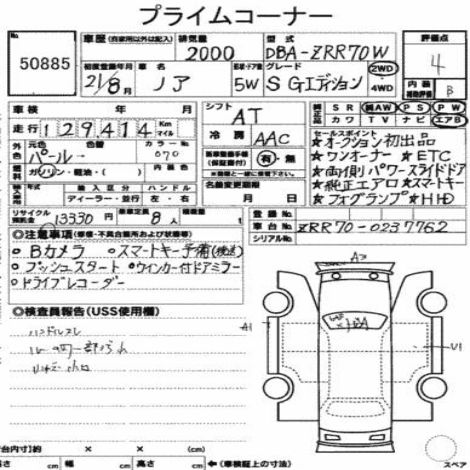 プライムコーナー
50885
車歴 (自家用以外は記入) 排気量 2000 型式 DBA-ZRR70W 評価点 4
初度登録年月 21/8月 車名 ノア ドア・形状 5W グレード S Gエディション 2WD 4WD 内装 補助評価 B
車検 年 月 シフト AT 純正 SR 純AW PS PW
走行 129414 Km マイル 冷房 AAC 装備 カワ TV ナビ エアB
外色 元色 パール 色替 カラーNo. 070
燃料 ガソリン・軽油・( ) 新車整備手帳 (保証書付) 有・無
輸入区分 ハンドル 名義変更期限 月 日
ディーラー・並行 左・右
リサイクル預託金 13330円 乗車定員 8人 積載量
セールスポイント
★オークション初出品
★ワンオーナー ★ETC
★両側パワースライドドア
★純正エアロ ★スマートキー
★フォグランプ ★HID
登録No.
車台No. ZRR70-0237762
シリアルNo.
◎注意事項(修復・不具合箇所および状態等)
○Bカメラ ○スマートキー予備(後送)
○プッシュスタート ○ウインカー付ドアミラー
○ドライブレコーダー
◎検査員報告(USS使用欄)
ハンドルスレ
A1
U1
寸) 約 × × 約
高さ cm 幅 cm 高さ cm ←(車検証上の寸法)
スペア